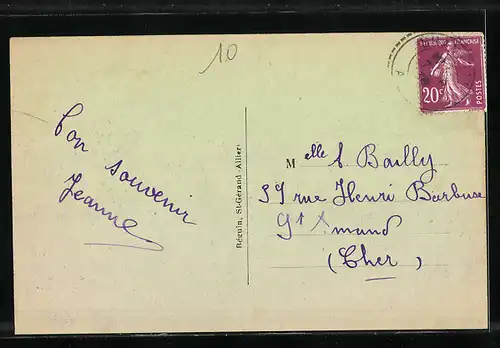 10
Bon souvenir
Jeanne
Béguin, St-Gérand (Allier)
RÉPUBLIQUE FRANÇAISE
20c
POSTES
Melle S. Bailly
59 rue Henri Barbuse
St Amand
(Cher)